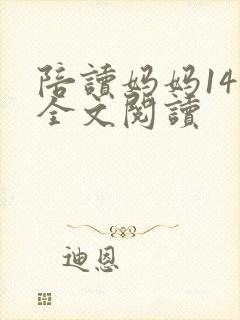 陪讀妈妈14
全文閱讀
迪恩